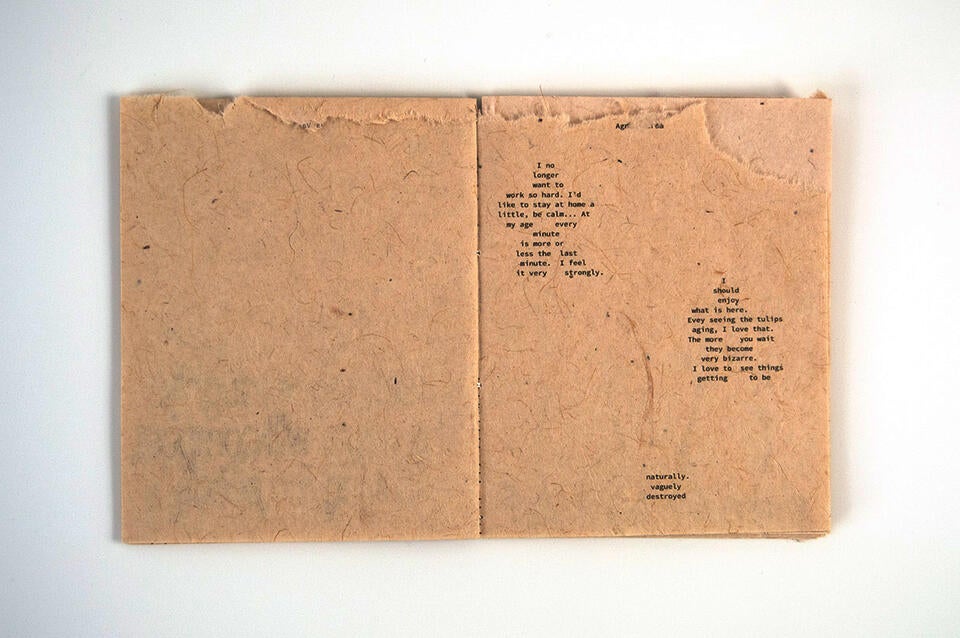 I no
longer
want to
work so hard. I'd
like to stay at home a
little, be calm... At
my age every
minute
is more or
less the last
minute. I feel
it very strongly.
I
should
enjoy
what is here.
Evey seeing the tulips
aging, I love that.
The more you wait
they become
very bizarre.
I love to see things
getting to be
naturally.
vaguely
destroyed